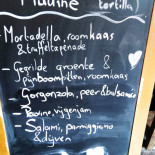 tortilla
- Mortadella, roomkaas
& truffeltapenade
- Gegrilde groente &
pijnboompitten, roomkaas
- Gorgonzola, peer & balsamico
vijgenjam
- Salami, parmiggiano
& olijven